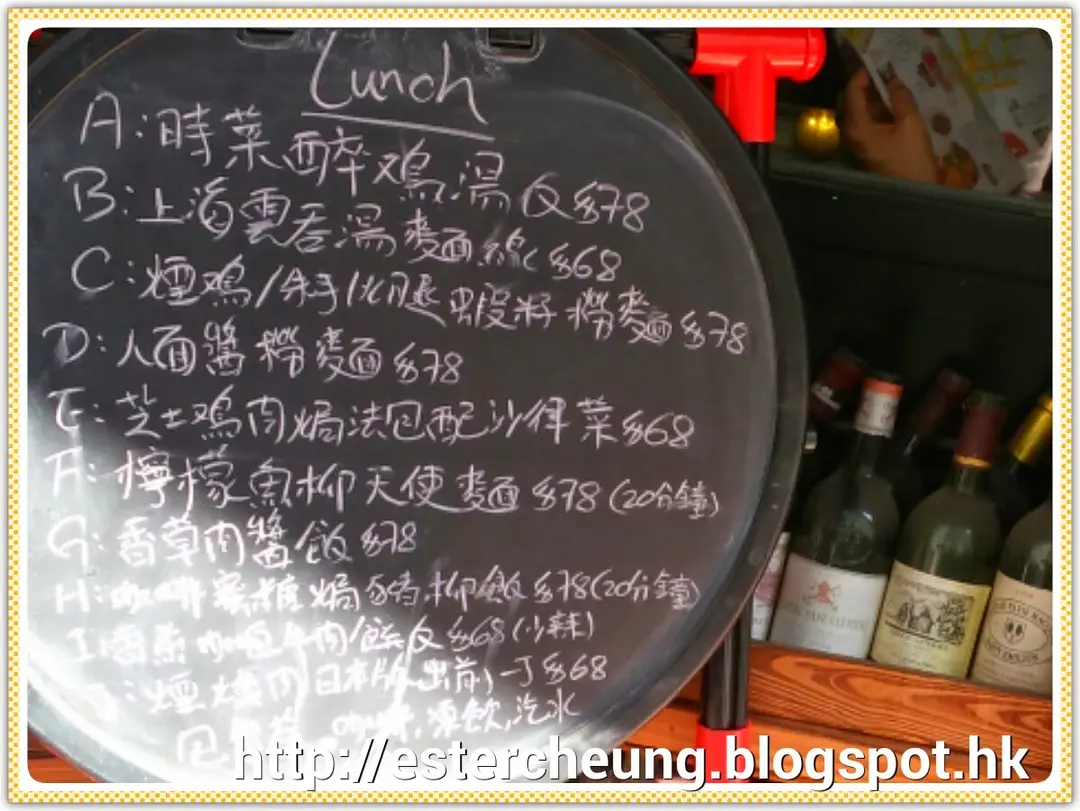 Lunch
A:時菜醉鸡湯反$78
B:上海雲吞湯麵線$68
C:煙鸡/手火腿蝦籽撈麵$78
D:人面醬撈麵$78
E:芝士鸡肉焗法包配沙律菜$68
F:檸檬魚柳天使麵$78(20分鐘)
G:香草肉醬飯$78
H:咖啡蜜糖焗豬柳飯$78(20分鐘)
I:香 咖喱牛肉/飯$68(小辣)
:煙 肉日本版出前一丁$68
凍飲,汽水
http://estercheung.blogspot.hk